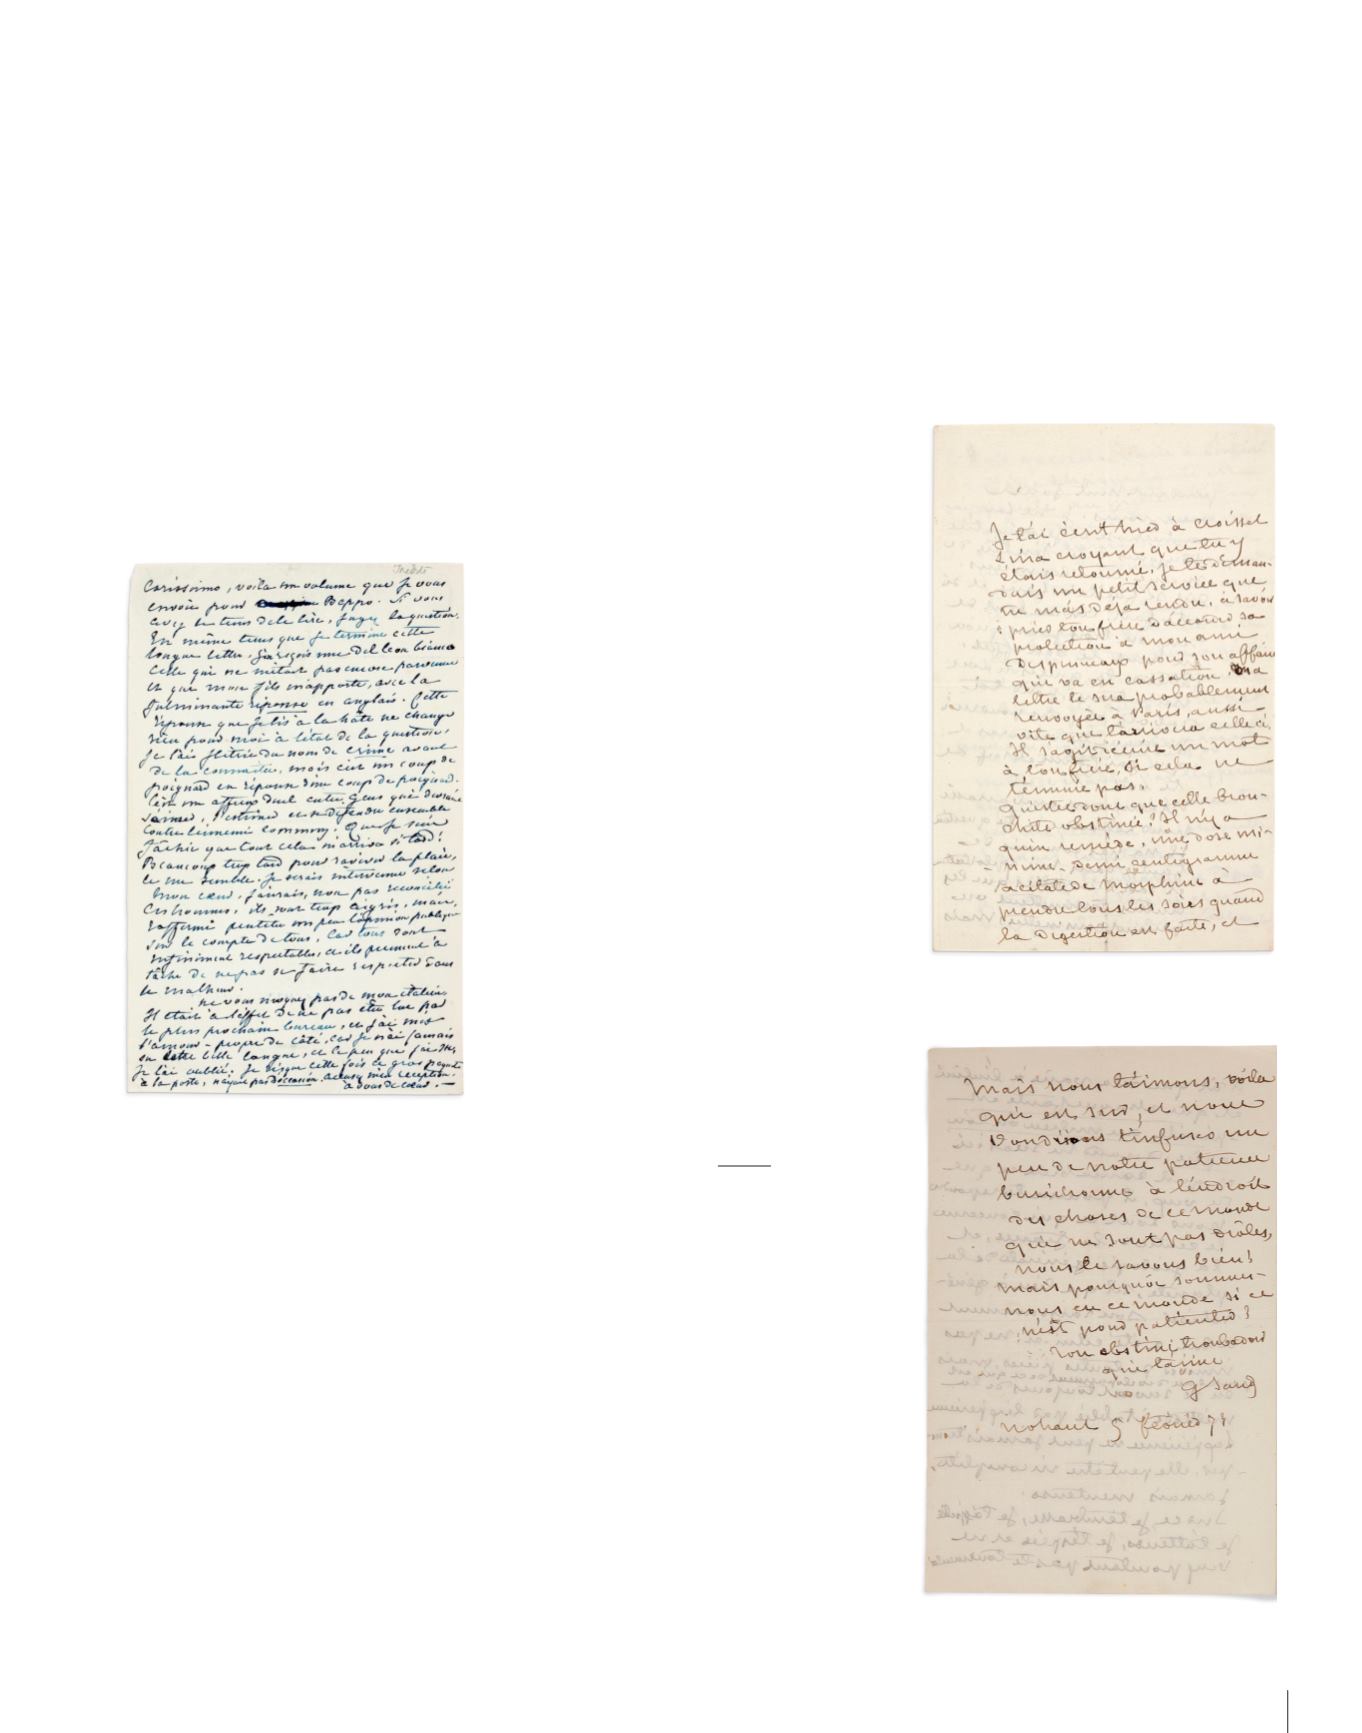 Inédit
Carissimo, voilà un volume que je vous
envoie pour Beppo. Si vous
avez le tems de le lire, jugez la question.
En même tems que je termine cette
longue lettre, j'en reçois une del leon bianco
celle qui ne m'était pas encore parvenue
et que mon fils m'apporte, avec la
fulminante réponse en anglais. Cette
réponse que je lis à la hâte ne change
rien pour moi à l'état de la question.
Je l'ais flétrie du nom de crime avant
de la connaître, mais c'est un coup de
poignard en réponse d'un coup de poignard.
C'est un affreux duel entre gens qui devraient
s'aimer, s'estimer et se défendre ensemble
contre l'ennemi commun. Que je suis
fâchée que tout cela m'arrive si tard!
Beaucoup trop tard pour raviver la plaie,
ce me semble. Je serais intervenue selon
mon cœur, j'aurais, non pas reconcilié
ces hommes, ils sont trop aigris, mais,
raffermi peutêtre un peu l'opinion publique
sur le compte de tous, car tous sont
infiniment respectables, et ils prennent à
tâche de ne pas se faire respecter dans
le malheur.
ne vous moquez pas de mon italien.
Il était à l'effet de ne pas être lue par
le plus prochain bureau, et j'ai mis
l'amour-propre de côté, car je n'ai jamais
su cette belle langue, et le peu que j'ai su,
je l'ai oublié. Je risque cette fois ce gros paquet
à la poste, n'ayant pas d'occasion. accusez m'en reception.
à vous de cœur. —
Je t'ai écrit hier à Croisset
Lina croyant que tu y
étais retourné. je te deman-
dais un petit service que
tu m'as déjà rendu, à savoir
prier ton frère d'accorder sa
protection à mon ami
Despruneaux pour son affaire
qui va en cassation. Ma
lettre te sera probablement
renvoyée à Paris, aussi
vite que t'arrivera celle ci.
Il s'agit d'écrire un mot
à ton frère, si cela ne
t'ennuie pas.
Qu'est ce donc que cette bron-
chite obstinée? Il n'y a
qu'un remède, une dose mi-
nime, demi centigramme
acétate de morphine à
prendre tous les soirs quand
la digestion est faite, et
Mais nous t'aimons, voilà
qui est sûr, et nous
voudrions t'infuser un
peu de notre patience
berrichonne à l'endroit
des choses de ce monde
qui ne sont pas drôles,
nous le savons bien!
mais pourquoi sommes-
nous en ce monde si ce
n'est pour patienter?
ton obstiné troubadour
qui t'aime
G Sand
Nohant 5 février 7